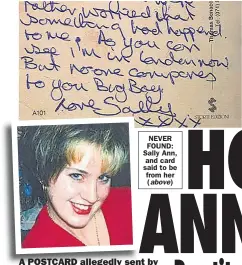 rather worried that
something bad happened
to me. As you can
see I'm in London now
But no one compares
to you Big Boy
Love Sally
xxxx
A101
NEVER
FOUND:
Sally Ann,
and card
said to be
from her
(above)
HO
ANN
A POSTCARD allegedly sent by